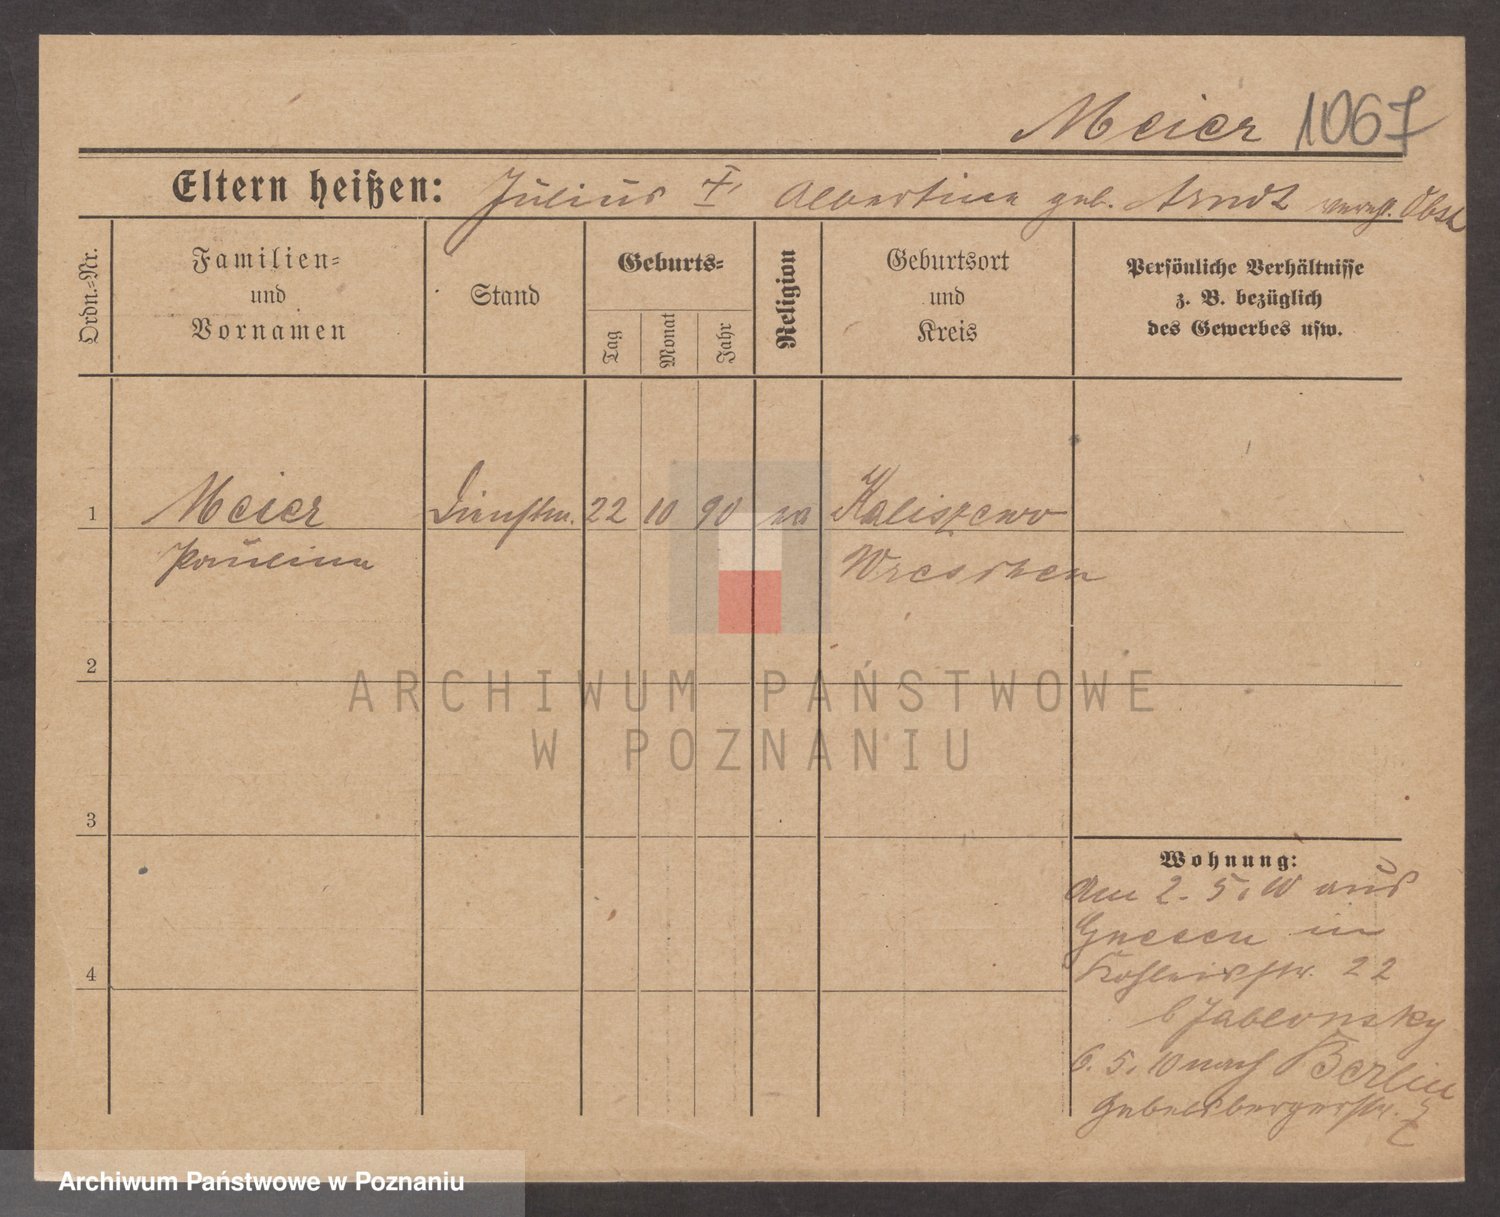 Meier 1067
Eltern heißen: Julius †, Albertine geb. Arndt
Ordn.-Nr.
Familien-
und
Vornamen
Stand
Geburts-
Tag
Monat
Jahr
Religion
Geburtsort
und
Kreis
Persönliche Verhältnisse
z. B. bezüglich
des Gewerbes usw.
1 Meier Dienstm. 22 10 90 Kaliszewo
Pauline Wreschen
2
ARCHIWUM PAŃSTWOWE
W POZNANIU
3
4
Wohnung:
Am 2. 5. 10 aus
Gnesen in
22
b Jablonsky
6. 5. 10 nach Berlin
Archiwum Państwowe w Poznaniu